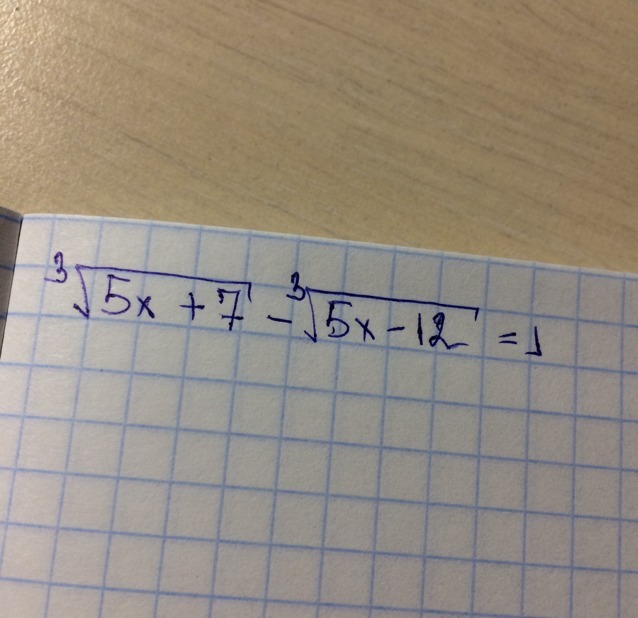 ∛(5x + 7) - ∛(5x - 12) = 1